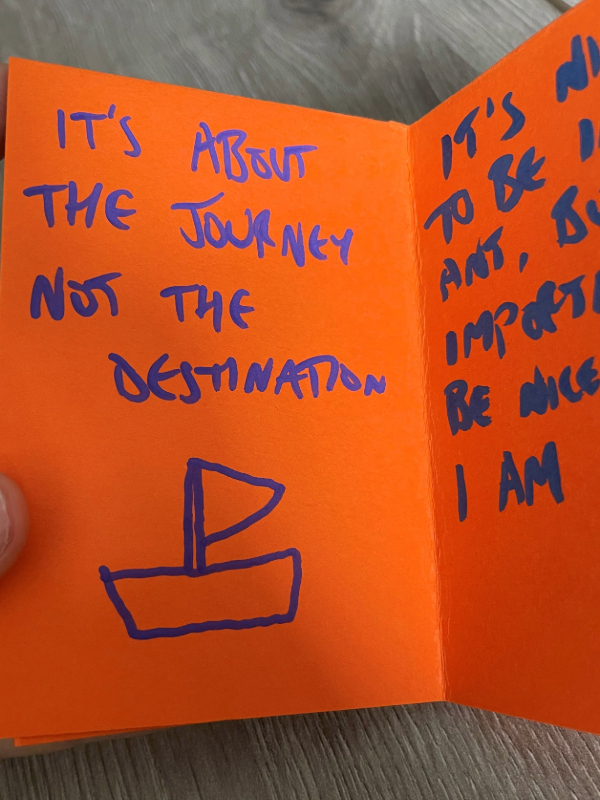 IT'S ABOUT
THE JOURNEY
NOT THE
DESTINATION
IT'S
TO BE
ANT,
BE NICE
I AM